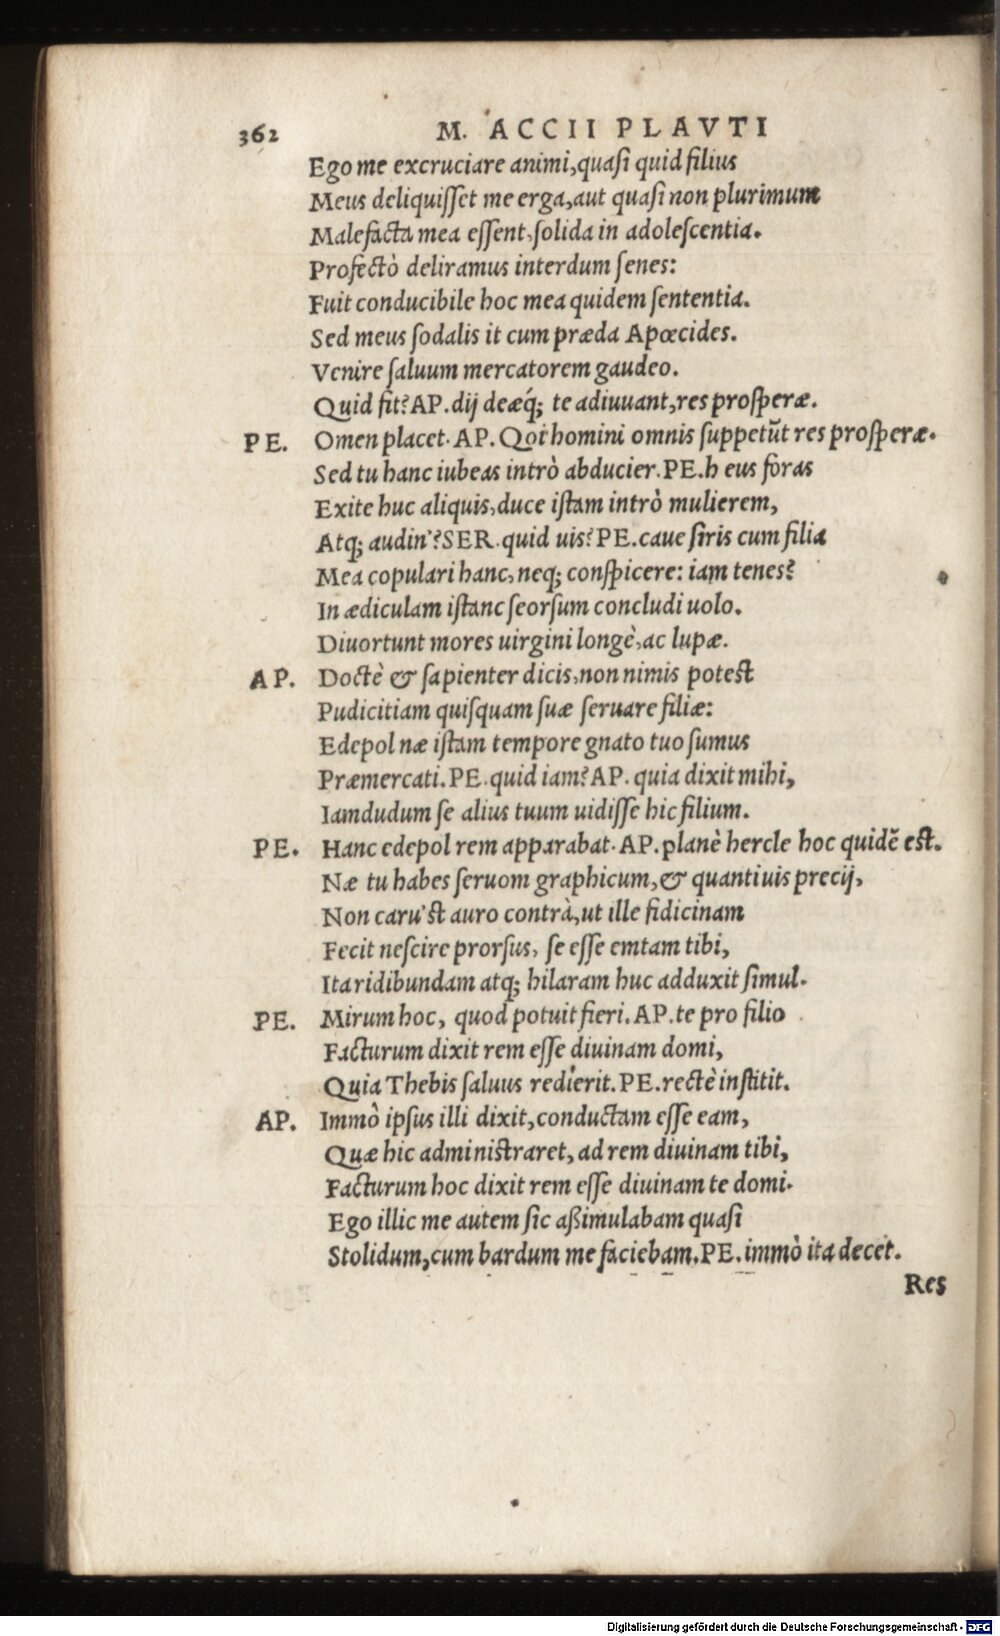 362 M. ACCII PLAVTI
Ego me excruciare animi, quaſi quid filius
Meus deliquiſſet me erga, aut quaſi non plurimum
Malefacta mea eſſent, ſolida in adoleſcentia.
Profectò deliramus interdum ſenes:
Fuit conducibile hoc mea quidem ſententia.
Sed meus ſodalis it cum præda Apœcides.
Venire ſaluum mercatorem gaudeo.
Quid fit? AP. dij deæq́; te adiuuant, res proſperæ.
PE. Omen placet. AP. Qoi homini omnis ſuppetūt res proſperæ.
Sed tu hanc iubeas intrò abducier. PE. h eus foras
Exite huc aliquis, duce iſtam intrò mulierem,
Atq; audin'? SER. quid uis? PE. caue ſiris cum filia
Mea copulari hanc, neq; conſpicere: iam tenes?
In ædiculam iſtanc ſeorſum concludi uolo.
Diuortunt mores uirgini longè, ac lupæ.
AP. Doctè & ſapienter dicis, non nimis poteſt
Pudicitiam quiſquam ſuæ ſeruare filiæ:
Edepol næ iſtam tempore gnato tuo ſumus
Præmercati. PE. quid iam? AP. quia dixit mihi,
Iamdudum ſe alius tuum uidiſſe hic filium.
PE. Hanc edepol rem apparabat. AP. planè hercle hoc quidē eſt.
Næ tu habes ſeruom graphicum, & quantiuis precij,
Non caru'ſt auro contrà, ut ille fidicinam
Fecit neſcire prorſus, ſe eſſe emtam tibi,
Ita ridibundam atq; hilaram huc adduxit ſimul.
PE. Mirum hoc, quod potuit fieri. AP. te pro filio
Facturum dixit rem eſſe diuinam domi,
Quia Thebis ſaluus redierit. PE. rectè inſtitit.
AP. Immò ipſus illi dixit, conductam eſſe eam,
Quæ hic adminiſtraret, ad rem diuinam tibi,
Facturum hoc dixit rem eſſe diuinam te domi.
Ego illic me autem ſic aßimulabam quaſi
Stolidum, cum bardum me faciebam. PE. immò ita decet.
Res
Digitalisierung gefördert durch die Deutsche Forschungsgemeinschaft - DFG